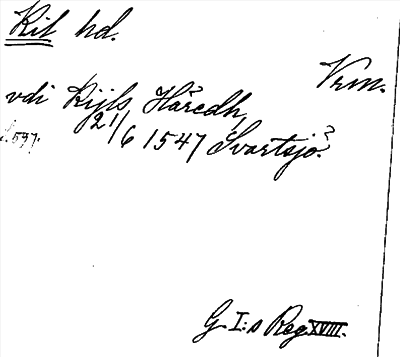 Kil hd.
Vrm.
vdi Kijls Häredh,
21/6 1547 Svartsjö?
s. 597.
G. I:s Reg XVIII.